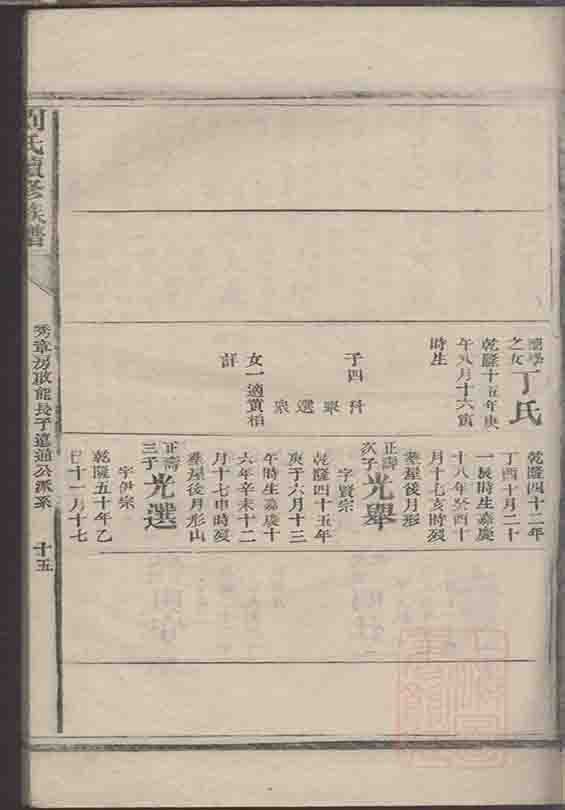 之女
丁氏
乾隆十五年庚
午八月十六寅
時生
子四
舉
選
衆
女一適賈栢
乾隆四十二年
丁酉十月二十
一辰時生嘉慶
十八年癸酉十
月十七亥時歿
葬屋後月形
正壽次子光舉
字賢宗
乾隆四十五年
庚子六月十三
午時生嘉慶十
六年辛未十二
月十七申時歿
葬屋後月形山
正壽三子光選
字伊宗
乾隆五十年乙
巳十一月十七
劉氏續修族譜
秀章房啟能長子嘉通公派系
十五